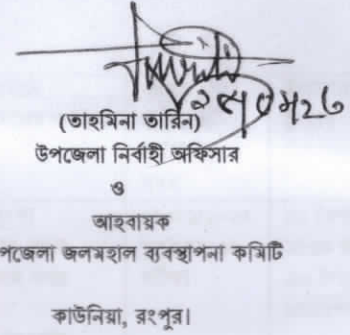 (তাহমিনা তারিন)
উপজেলা নির্বাহী অফিসার
ও
আহবায়ক
পজেলা জলমহাল ব্যবস্থাপনা কমিটি
কাউনিয়া, রংপুর।